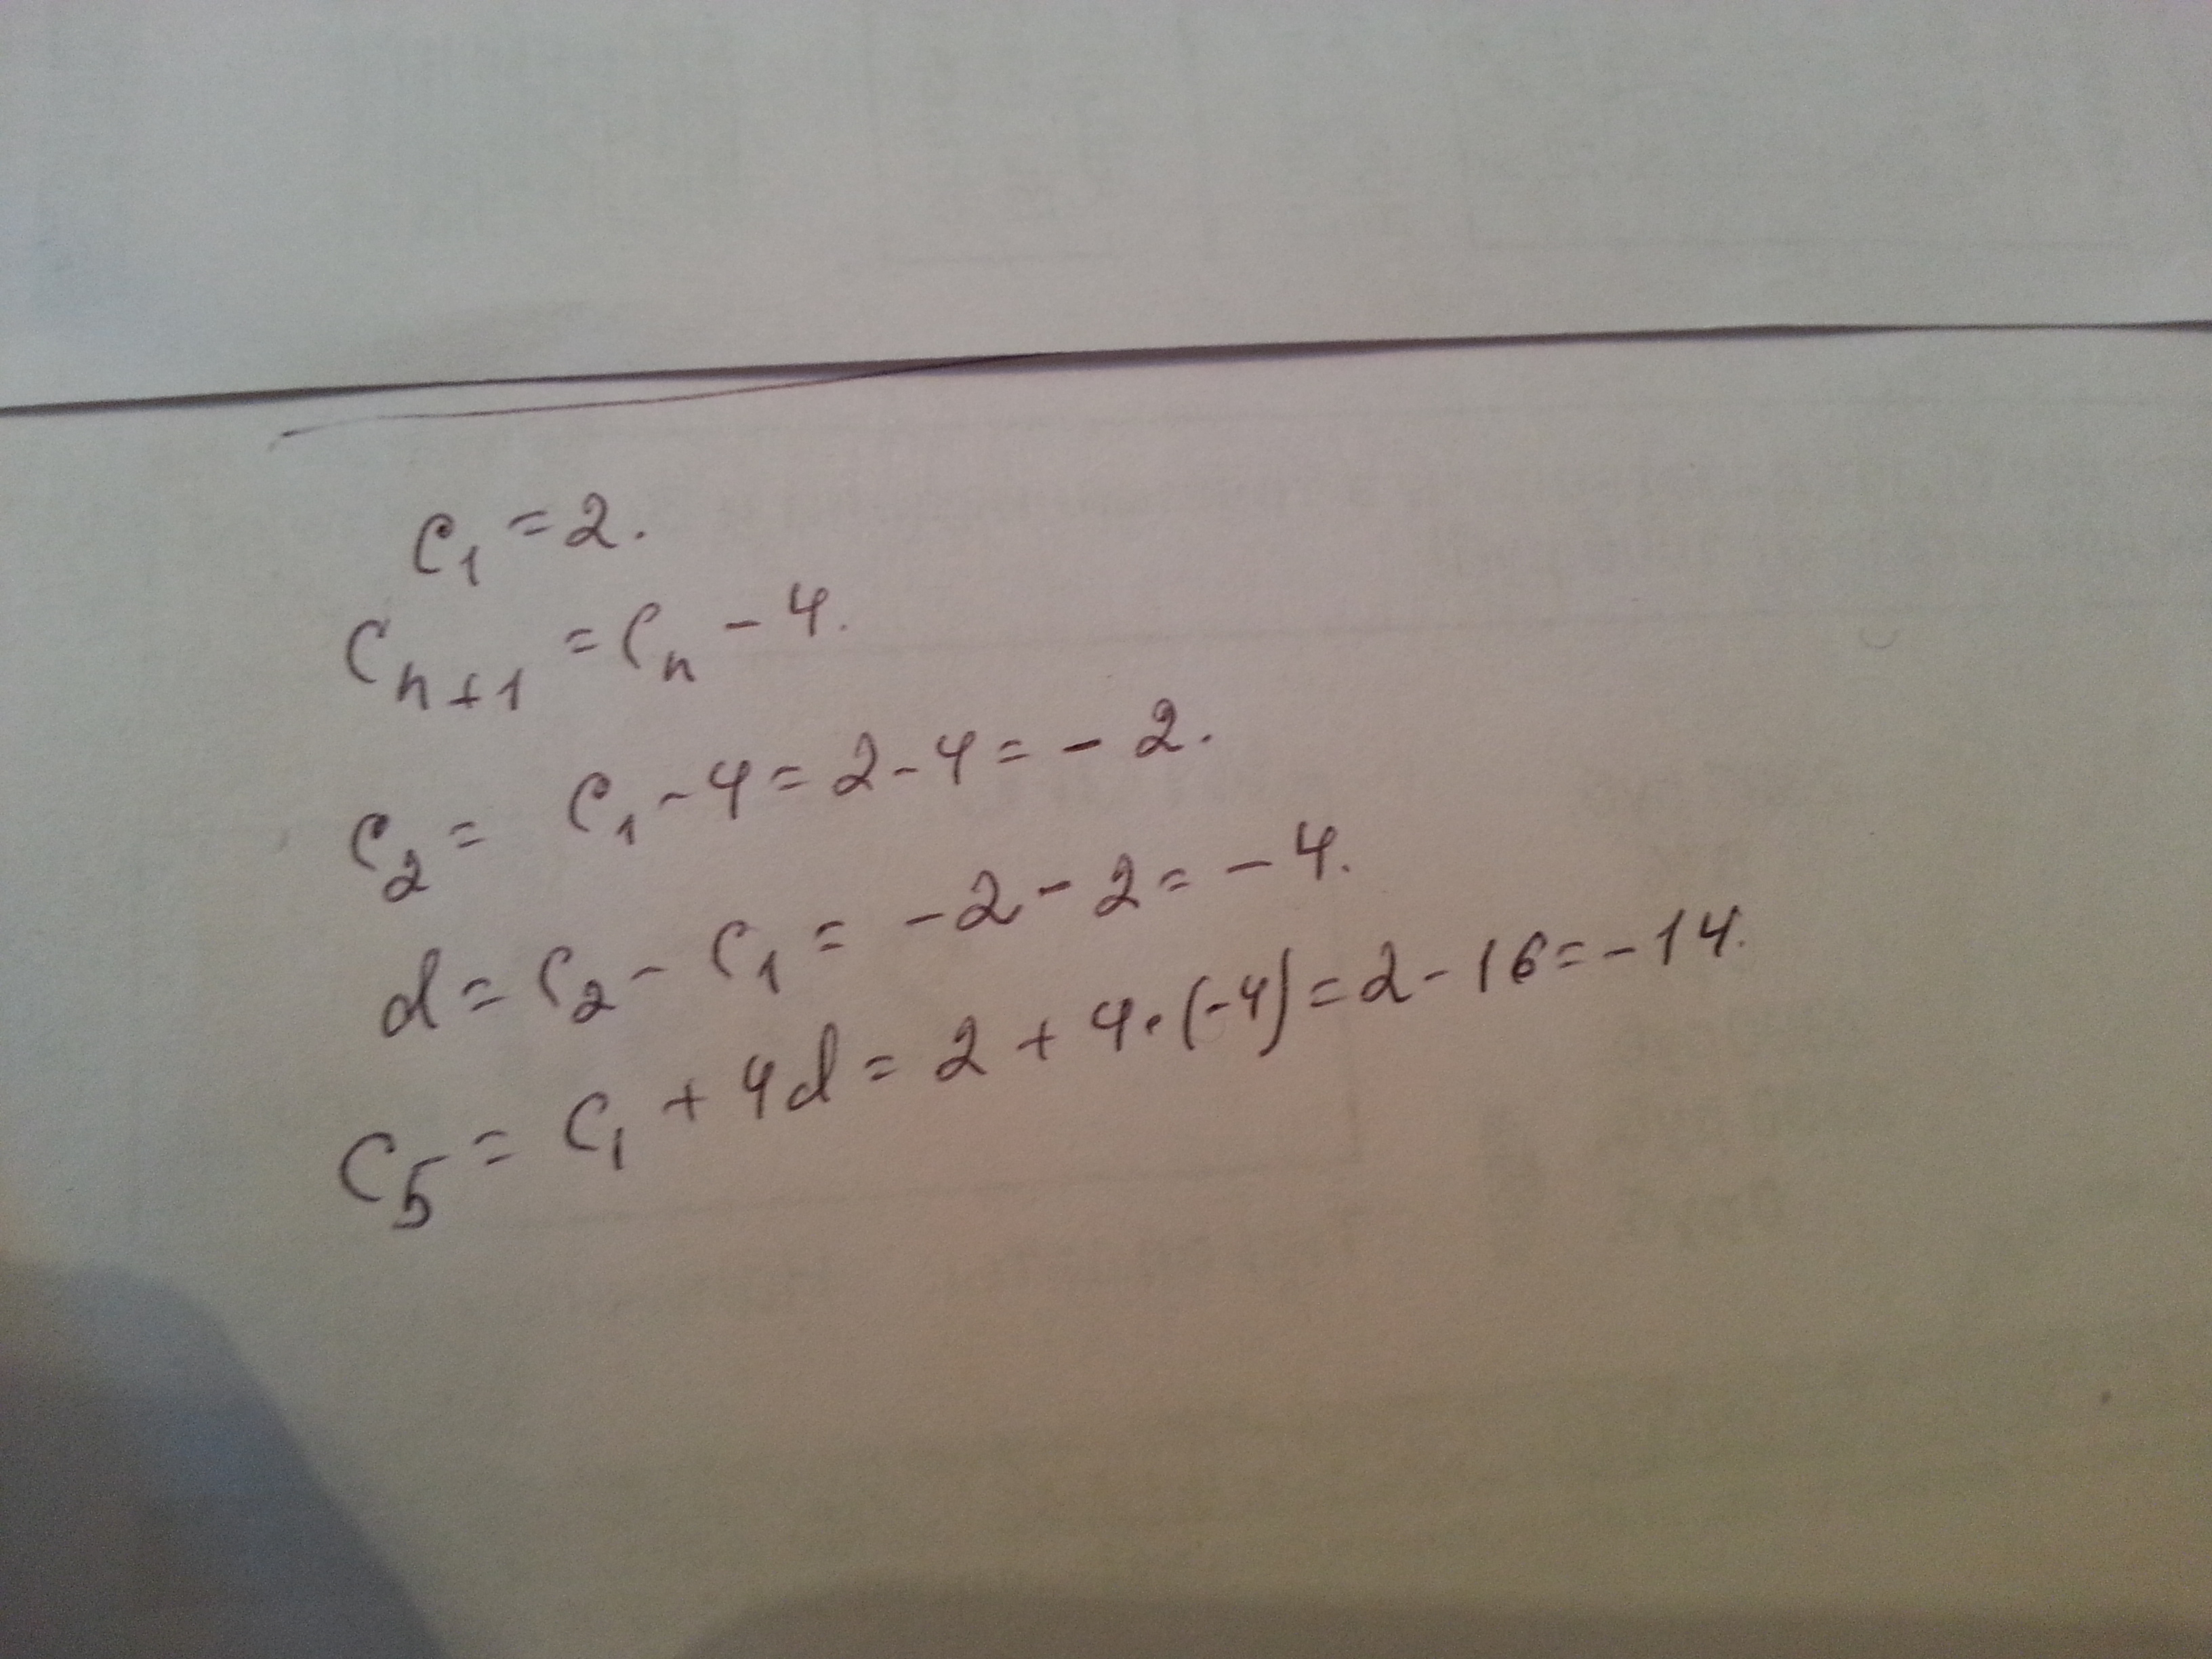 c₁ = 2.
cₙ₊₁ = cₙ - 4.
c₂ = c₁ - 4 = 2 - 4 = - 2.
d = c₂ - c₁ = -2 - 2 = - 4.
c₅ = c₁ + 4d = 2 + 4·(-4) = 2 - 16 = -14.